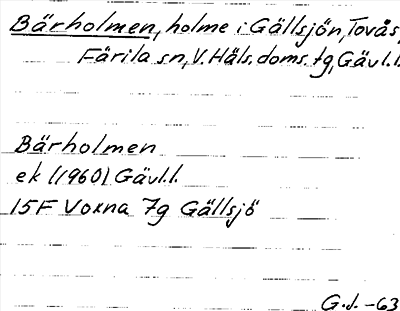 Bärholmen, holme i Gällsjön, Tovås, 
Färila sn, V. Häls. doms. tg, Gävl.l.
Bärholmen
ek (1960) Gävl.l.
15F Voxna 7g Gällsjö
G.d. -63